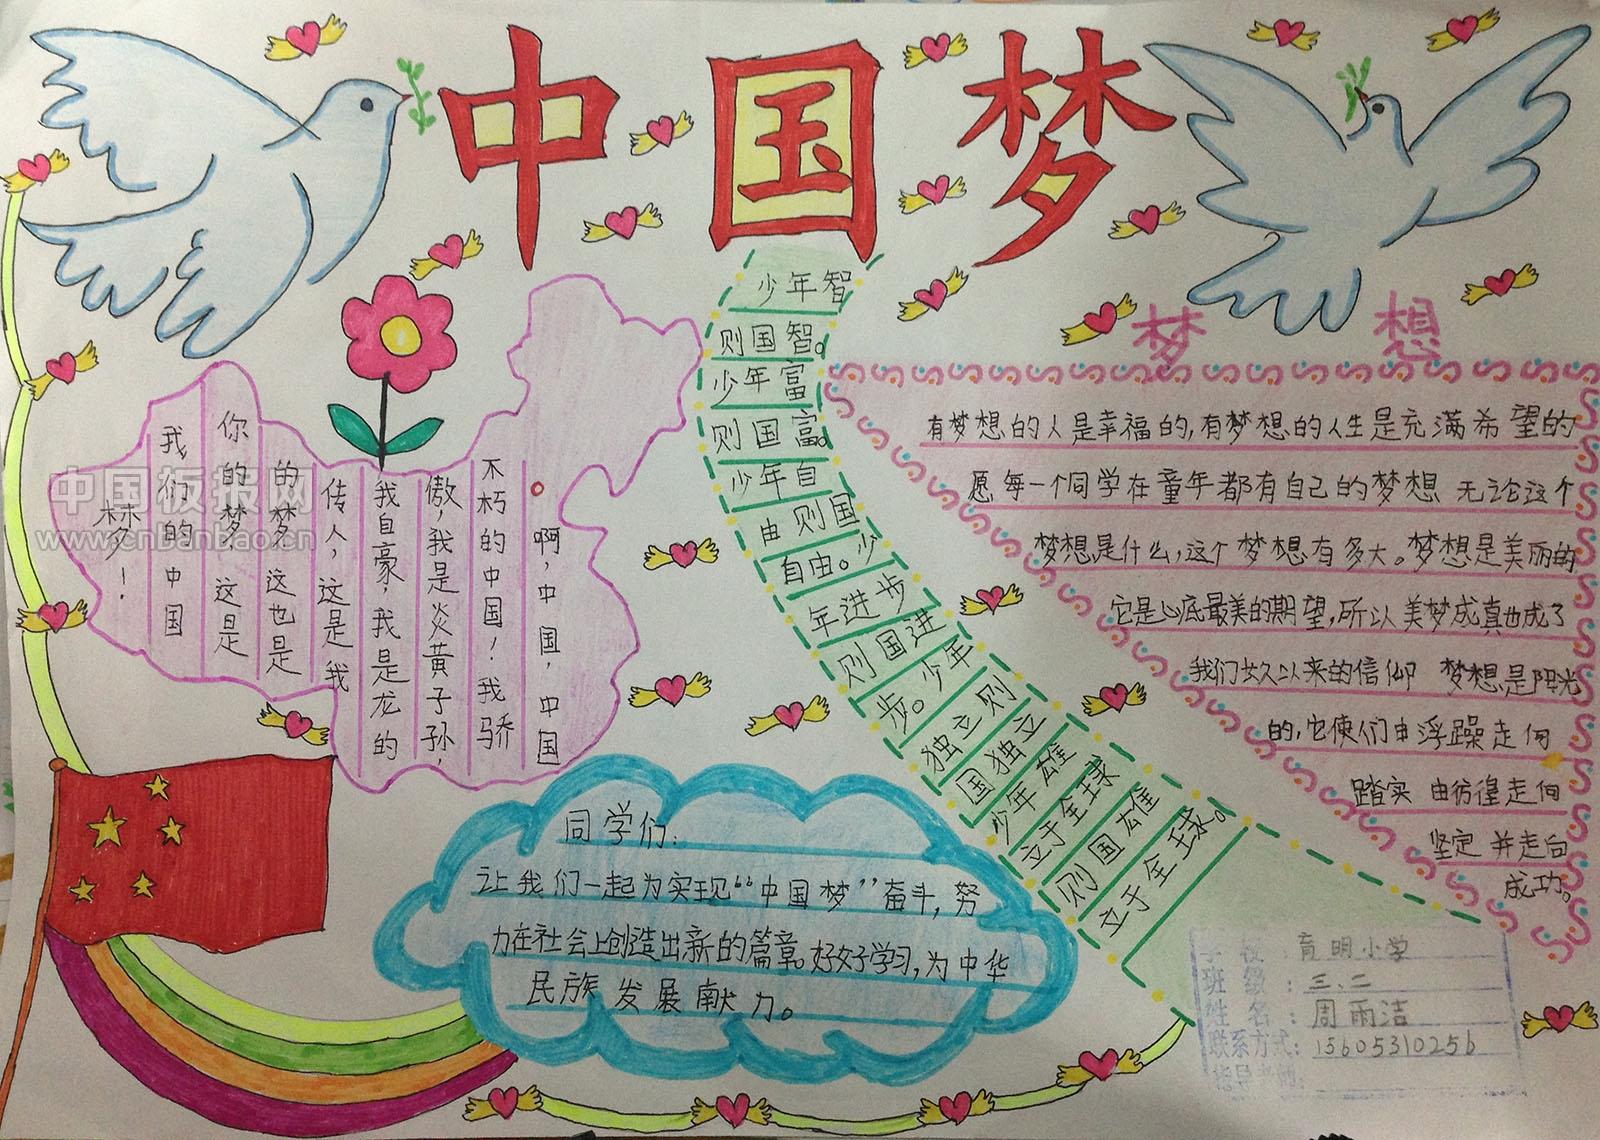 中国梦
少年智
则国智。
少年富
则国富。
少年自
由则国
自由。少
年进步
则国进
步。少年
独立则
国独立
少年雄
立于全球
则国雄
立于全球。
啊，中国，中国
不朽的中国！我骄
傲，我是炎黄子孙，
我自豪，我是龙的
传人，这是我
的梦，这也是
你的梦，这是
我们的中国
梦！
梦想
有梦想的人是幸福的,有梦想的人生是充满希望的
愿每一个同学在童年都有自己的梦想 无论这个
梦想是什么,这个梦想有多大。梦想是美丽的
它是心底最美的期望,所以美梦成真也成了
我们长久以来的信仰 梦想是阳光
的,它使们由浮躁走向
踏实 由彷徨走向
坚定 并走向
成功。
同学们：
让我们一起为实现“中国梦”奋斗,努
力在社会上创造出新的篇章。好好学习,为中华
民族发展献力。
学校：育明小学
班级：三、二
姓名：周雨洁
联系方式：15605310256
指导老师：
中国板报网
www.cnbanbao.cn